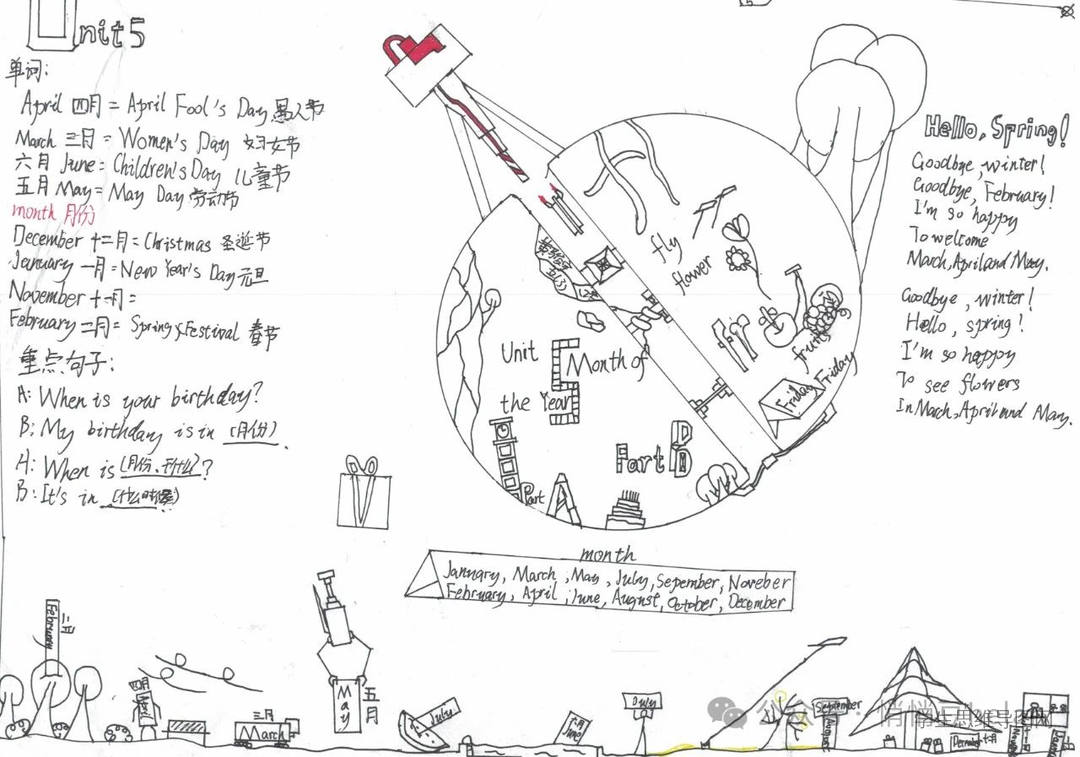 Unit5
单词:
April 四月 = April Fool's Day 愚人节
March 三月 = Women's Day 妇女节
六月 June = Children's Day 儿童节
五月 May = May Day 劳动节
month 月份
December 十二月 = Christmas 圣诞节
January 一月 = New Year's Day 元旦
November 十一月 =
February 二月 = Spring Festival 春节
重点句子:
A: When is your birthday?
B: My birthday is in (月份).
A: When is (月份、干什么)?
B: It's in (什么时候)
fly
flower
fruits
Friday Friday
Unit 5 Month of
the Year
Part B
Part A
Hello, Spring!
Goodbye, winter!
Goodbye, February!
I'm so happy
To welcome
March, April and May.
Goodbye, winter!
Hello, spring!
I'm so happy
To see flowers
In March, April and May.
month
January, March, May, July, Sepember, Noveber
February, April, June, August, October, December
February 二月
四月 April
三月
March
May 五月
July
六月 June
July
September
August
December 十二月
公众号
思维导图